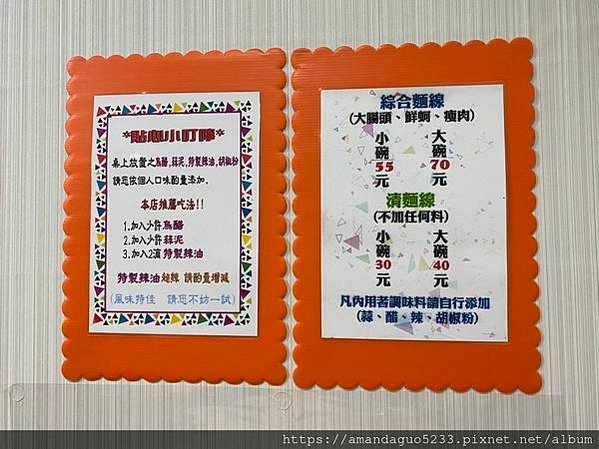 *貼心小叮嚀*
桌上放置之烏醋,蒜泥,特製辣油,胡椒粉
請您依個人口味酌量添加.
本店推薦吃法!!
1.加入少許烏醋
2.加入少許蒜泥
3.加入2滴特製辣油
特製辣油超辣 請酌量增減
(風味特佳 請您不妨一試)
綜合麵線
(大腸頭、鮮蚵、瘦肉)
小碗55元
大碗70元
清麵線
(不加任何料)
小碗30元
大碗40元
凡內用者調味料請自行添加
(蒜、醋、辣、胡椒粉)
https://amandaguo5233.pixnet.net/album